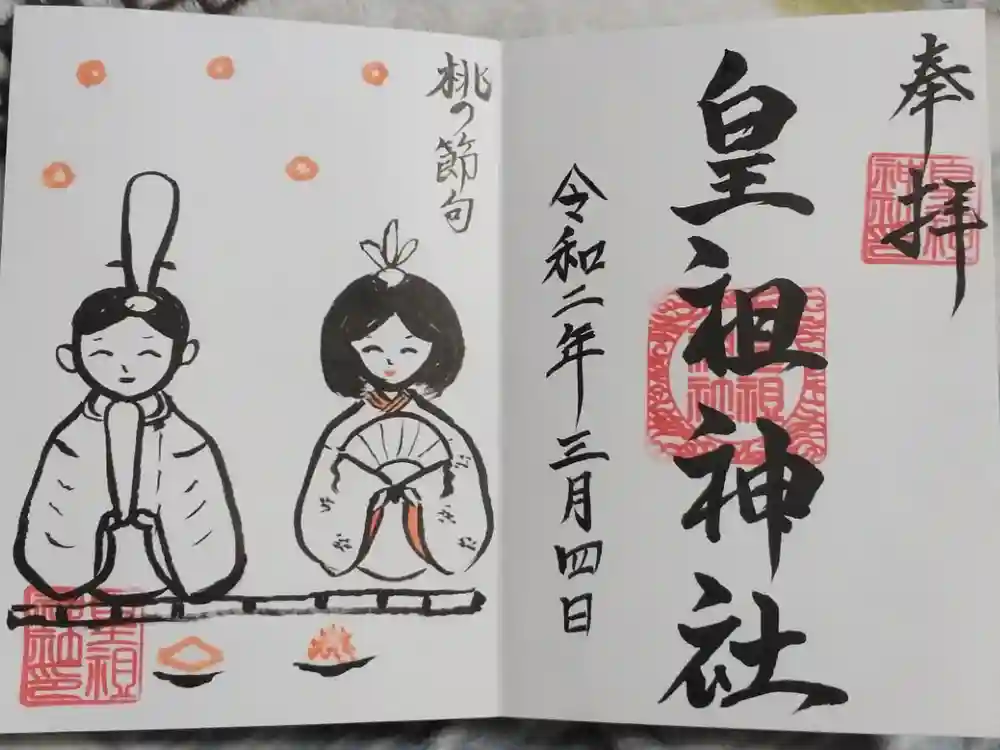 奉拝
皇祖神社
令和二年三月四日
桃の節句
皇祖
神社印